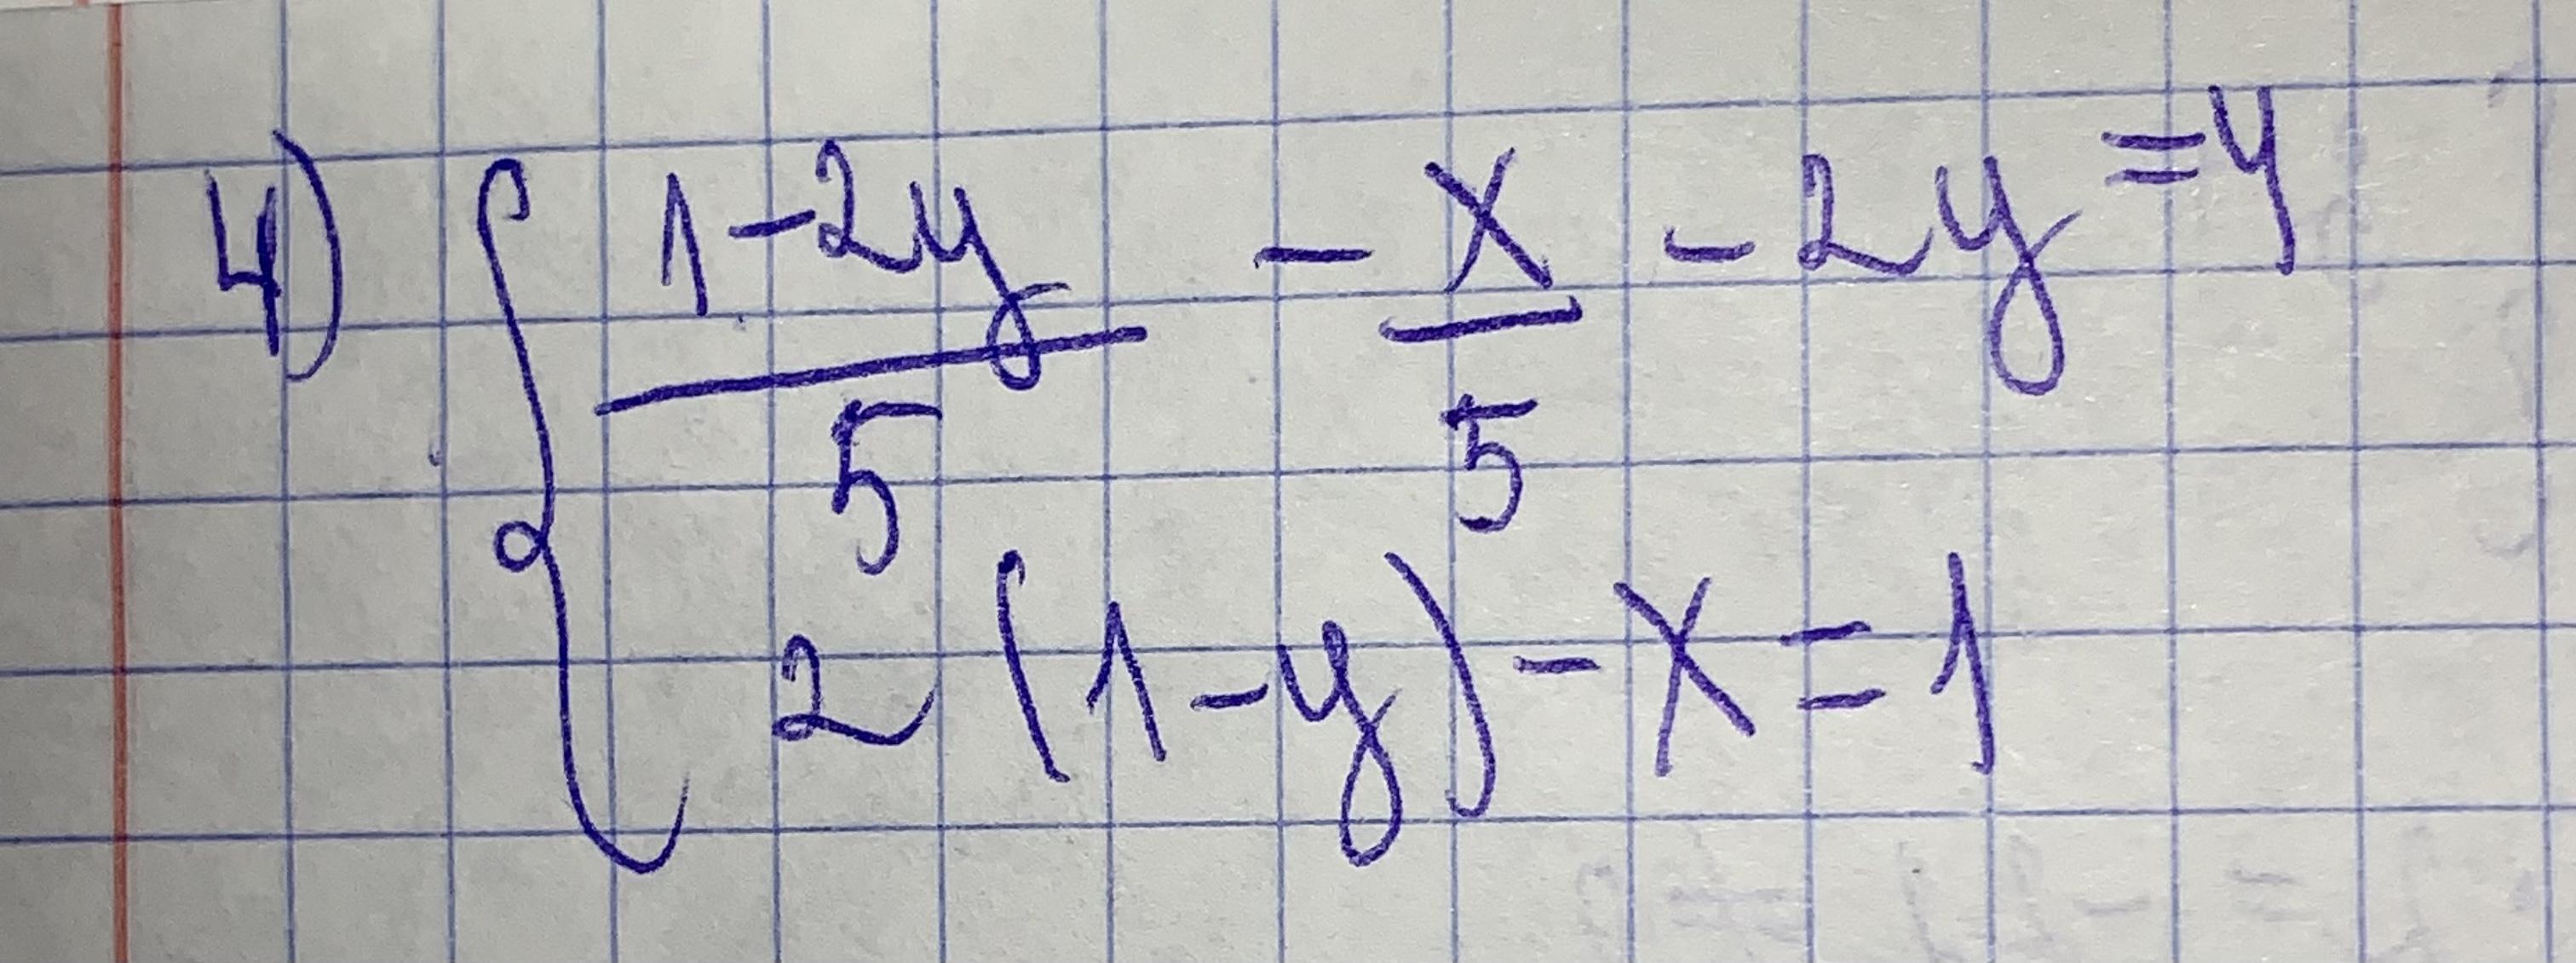 4) { (1-2y)/5 - x/5 - 2y = 4
2(1-y) - x = 1